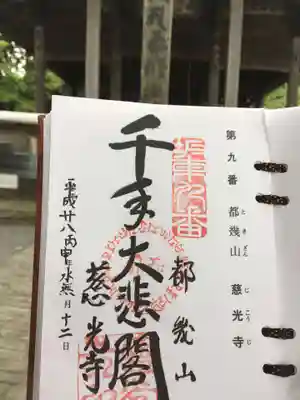 第九番 都幾山 慈光寺
ときざん じこうじ
坂東九番
都幾山
千手大悲閣
慈光寺
平成廿八丙申年水無月十二日